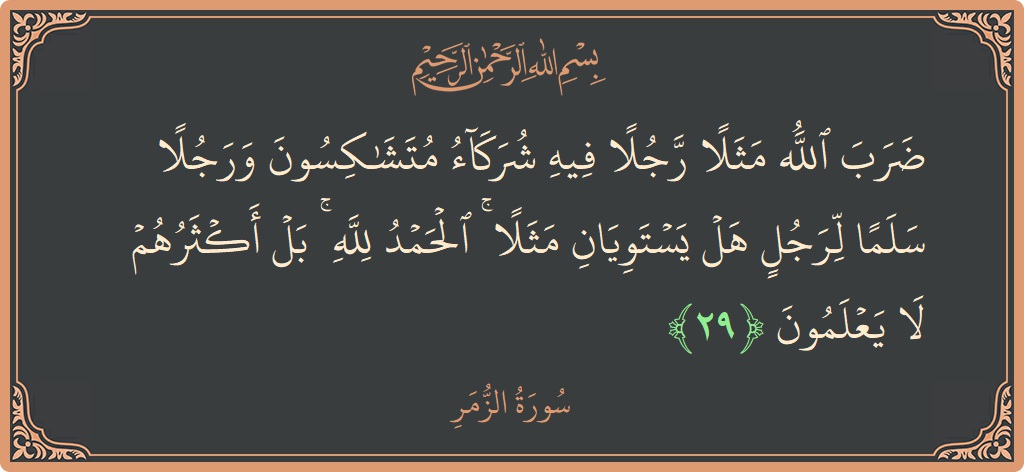 بِسْمِ اللهِ الرَّحْمٰنِ الرَّحِيْمِ
ضَرَبَ ٱللَّهُ مَثَلًا رَّجُلًا فِيهِ شُرَكَآءُ مُتَشَٰكِسُونَ وَرَجُلًا
سَلَمًا لِّرَجُلٍ هَلْ يَسْتَوِيَانِ مَثَلًا ۚ ٱلْحَمْدُ لِلَّهِ ۚ بَلْ أَكْثَرُهُمْ
لَا يَعْلَمُونَ ﴿٢٩﴾
سُورَةُ الزُّمَرِ